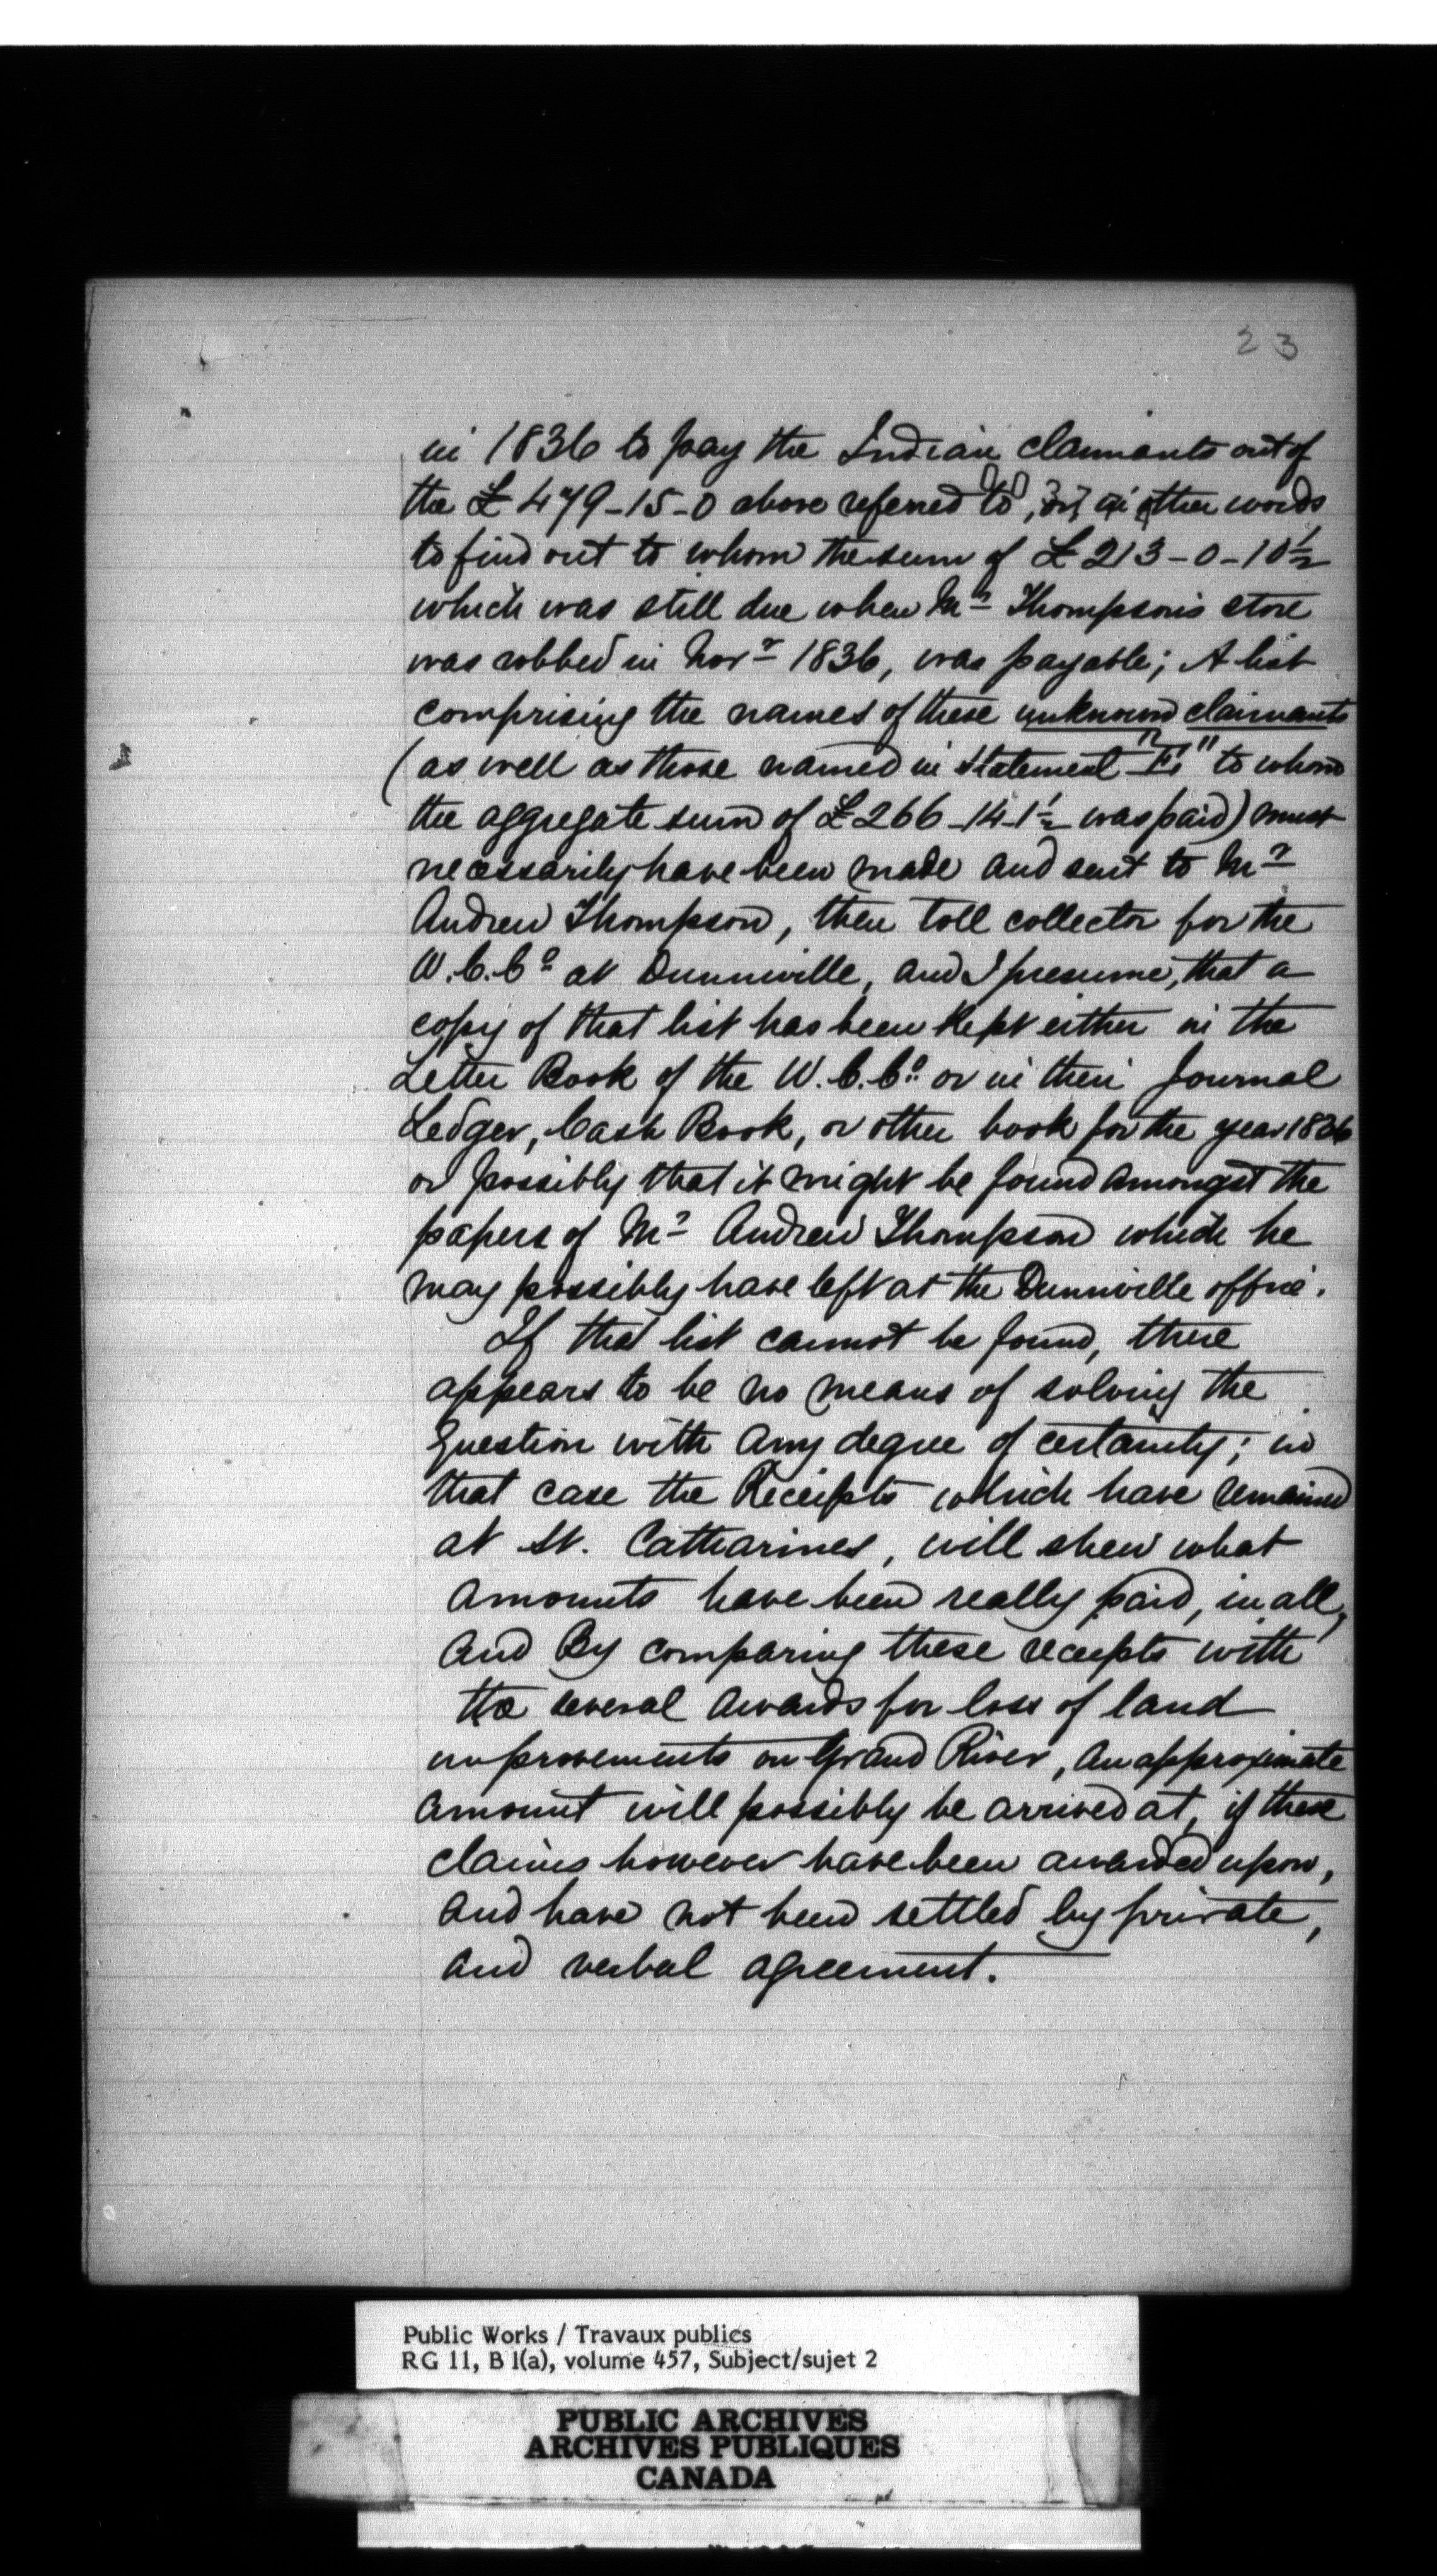 23
in 1836 to pay the Indian claimants out of
the £479-15-0 above referred to, or, in other words
to find out to whom the sum of £213-0-10½
which was still due when Mr Thompson's store
was robbed in Novr 1836, was payable; A list
comprising the names of these unknown claimants
(as well as those named in Statement "E" to whom
the aggregate sum of £266-14-1½ was paid) must
necessarily have been made and sent to Mr
Andrew Thompson, then toll collector for the
W.C.Co at Dunnville, and I presume, that a
copy of that list has been kept either in the
Letter Book of the W.C.Co or in their Journal
Ledger, Cash Book, or other book for the year 1836
or possibly that it might be found amongst the
papers of Mr Andrew Thompson which he
may possibly have left at the Dunnville office.
If that list cannot be found, there
appears to be no means of solving the
Question with any degree of certainty; in
that case the Receipts which have remained
at St. Catharines, will shew what
amounts have been really paid, in all,
and By comparing these receipts with
the several awards for loss of land
improvements on Grand River, an approximate
amount will possibly be arrived at, if these
claims however have been awarded upon,
and have not been settled by private,
and verbal agreement.
Public Works / Travaux publics
RG 11, B 1(a), volume 457, Subject/sujet 2
PUBLIC ARCHIVES
ARCHIVES PUBLIQUES
CANADA